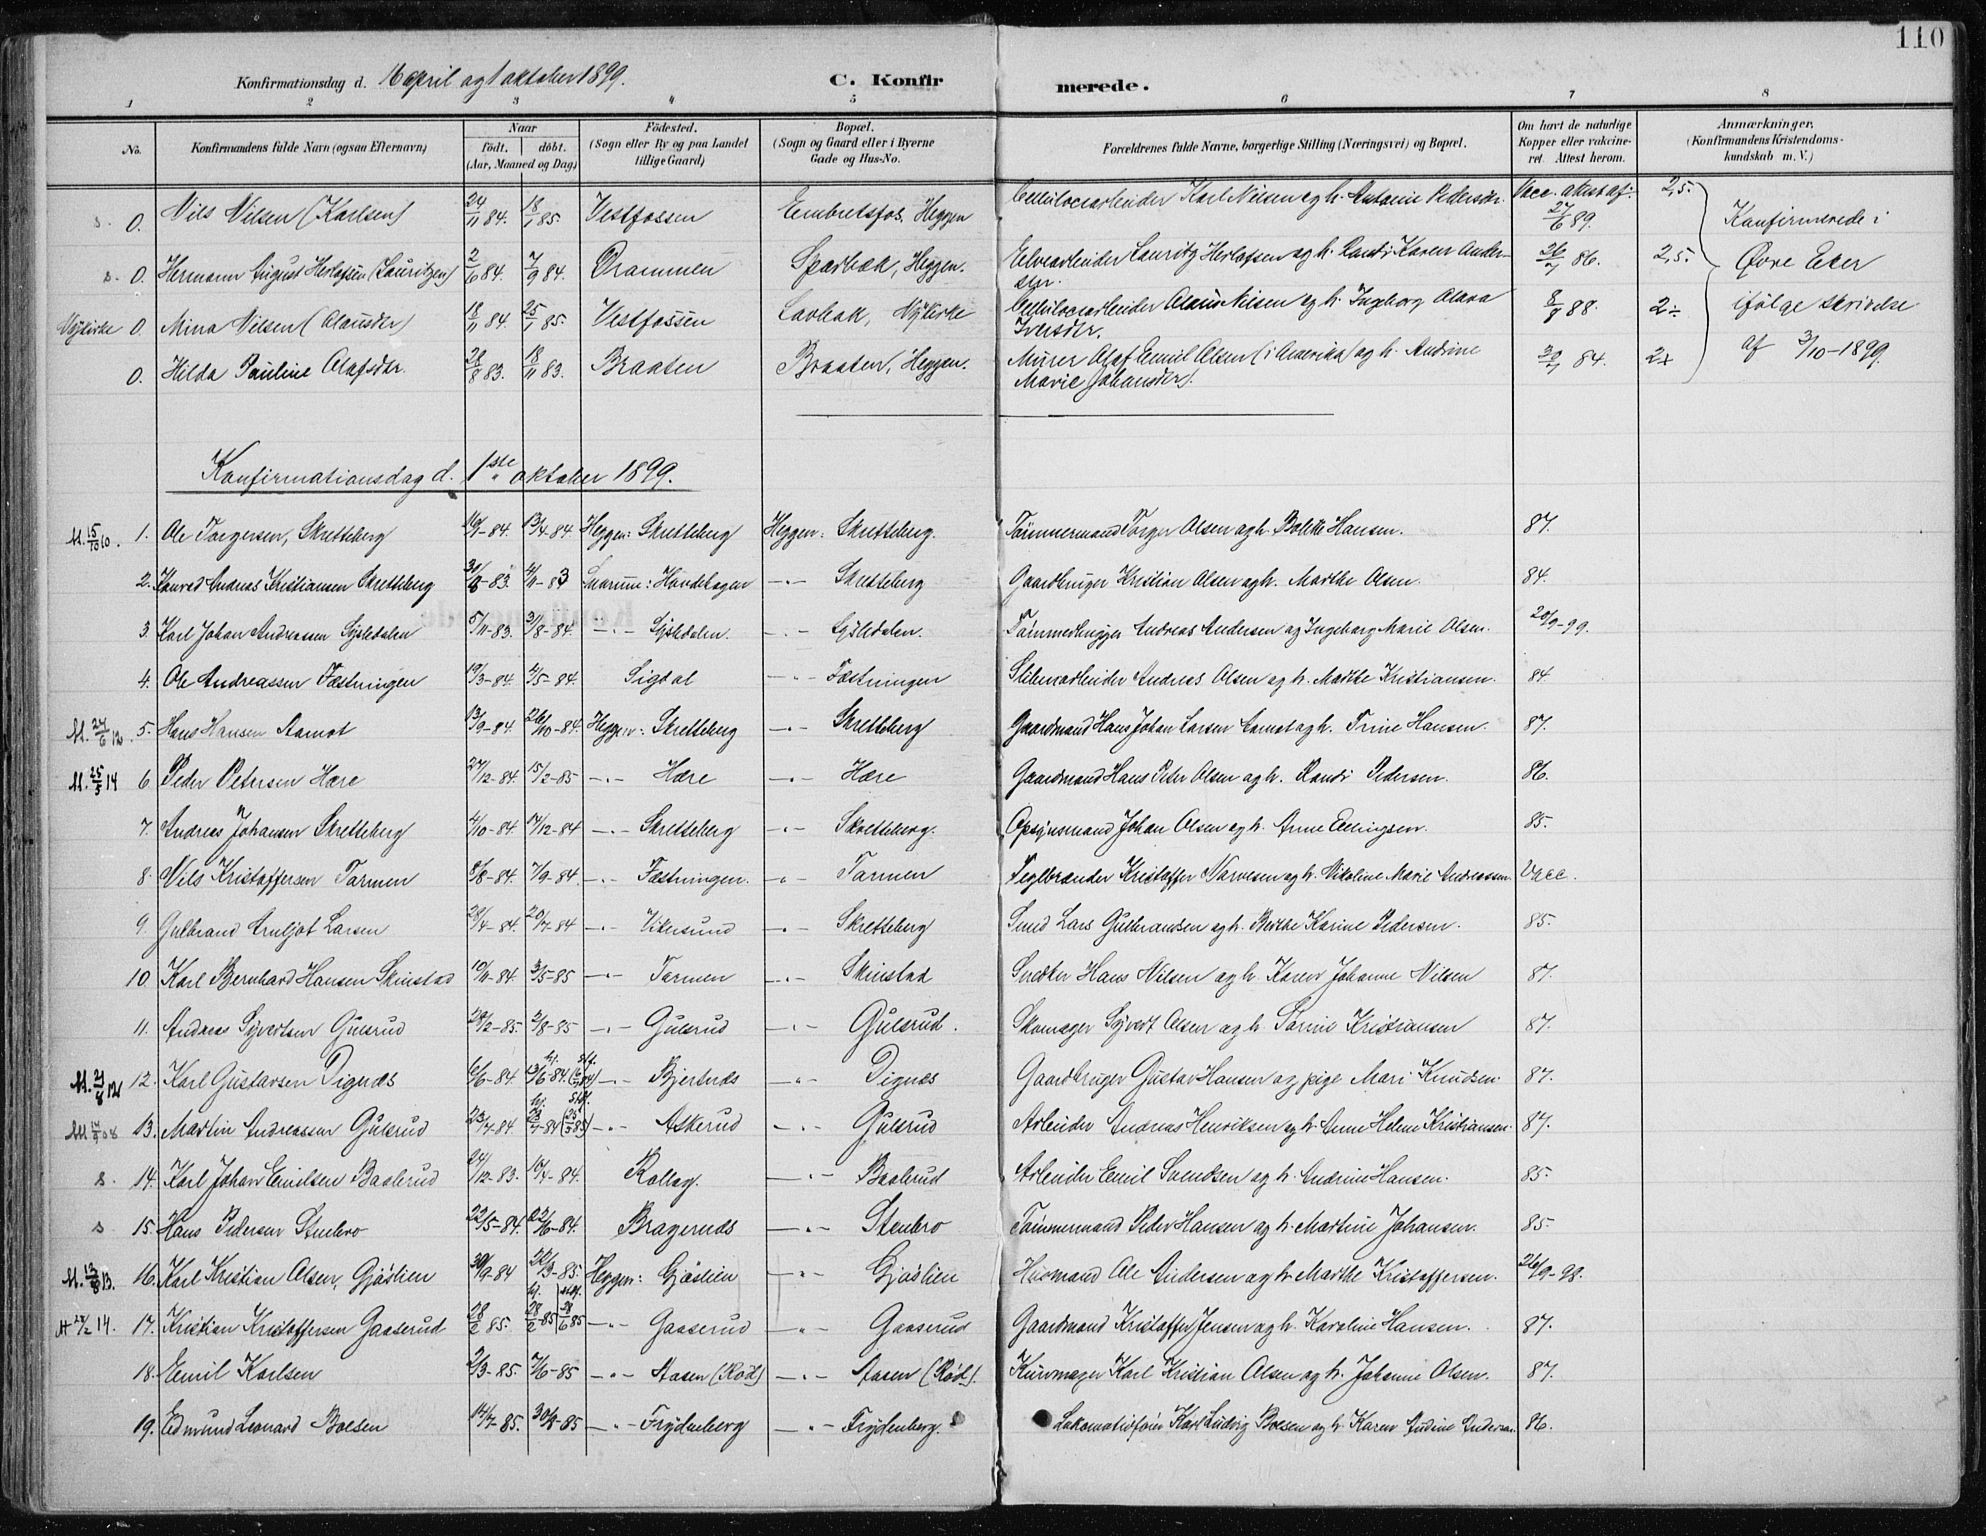 110
Konfirmationsdag d. 16 april og 1 oktober 1899.
C. Konfirmerede.
1 2 3 4 5 6 7 8
No.
Konfirmandens fulde Navn (ogsaa Efternavn)
Naar
født. døbt.
(Aar, Maaned og Dag)
Fødested.
(Sogn eller By og paa Landet
tillige Gaard)
Bopæl.
(Sogn og Gaard eller i Byerne
Gade og Hus-No.
Forældrenes fulde Navne, borgerlige Stilling (Næringsvei) og Bopæl.
Om havt de naturlige
Kopper eller vakcine-
ret. Attest herom.
Anmærkninger,
(Konfirmandens Kristendoms-
kundskab m. V.)
s. 0. Nils Nilsen (Karlsen) 24/11 84. 18/1 85. Vestfossen Embretsfos, Heggen Cellulocearbeider Karl Nilsen og h. Antonie Pedersdr. Vacc. attest af: 27/6 89. 2,5.
s. 0. Hermann August Herlofsen (Lauritzen) 2/6 84. 7/9 84. Drammen Sparbæk, Heggen. Elvearbeider Lauritz Herlofsen og h. Randi Karen Anders-
dtr. 26/7 86. 2,5.
Nykirke 0. Mina Nilsen (Olausdtr) 18/11 84. 25/1 85. Vestfossen Lovbak, Nykirke Cellulocearbeider Olaus Nilsen og h. Ingeborg Olava
Iversdtr. 8/8 88. 2÷
0. Hilda Pauline Olafsdtr 28/8 83. 18/11 83. Braaten Braaten, Heggen. Murer Olaf Emil Olsen (i Amerika) og h. Andrine
Marie Johansdtr. 30/7 84. 2x
Konfirmerede i
Øvre Eker
ifølge skrivelse
af 3/10-1899.
Konfirmationsdag d. 1ste oktober 1899.
M. 15/10 10. 1. Ole Torgersen, Skretteberg 16/1-84. 13/4-84. Heggen: Skretteberg Heggen: Skretteberg. Tømmermand Torger Olsen og h. Bolette Hansen. 87.
2. Konrad Andreas Kristiansen Skretteberg 31/8-83. 4/11-83 Snarum: Hovdehagen —"— Skretteberg Gaardbruger Kristian Olsen og h. Marthe Olsen. 84.
3. Karl Johan Andreassen Lysledalen 5/11-83. 3/8-84. —"— Lysledalen. —"— Lysledalen. Tømmerhugger Andreas Andersen og Ingeborg Marie Olsen. 20/9-99.
4. Ole Andreassen Fæstningen 19/3-84. 4/5-84. Sigdal —"— Fæstningen Sliberiarbeider Andreas Olsen og h. Marthe Kristiansen. 84
M. 24/6 12. 5. Hans Hansen Aamot 13/9-84. 26/10-84. Heggen: Skretteberg —"— Skretteberg Gaardmand Hans Johan Larsen Aamot og h. Trine Hansen. 87.
M. 25/5 14 6. Peder Petersen Hære 27/12-84. 15/2-85 —"— Hære —"— Hære Gaardmand Hans Peter Olsen og h. Randi Pedersen. 86.
7. Andreas Johansen Skretteberg 4/10-84. 14/12-84 —"— Skretteberg —"— Skretteberg. Opsynsmand Johan Olsen og h. Anne Ellingsen. 85.
8. Nils Kristoffersen Tormen 8/8-84. 7/9-84. —"— Fæstningen. —"— Tormen Teglbrænder Kristoffer Narvesen og h. Nikoline Marie Andreassen. Vacc.
9. Gulbrand Arnljot Larsen 28/4-84. 20/7-84 —"— Vikersund —"— Skretteberg Smed Lars Gulbrandsen og h. Berthe Karine Pedersen. 85.
10. Karl Bernhard Hansen Skinstad 10/11-84. 3/5-85 —"— Tormen —"— Skinstad Snedker Hans Nilsen og h. Karen Johanne Nilsen 87.
11. Andreas Syvertsen Gulsrud 28/2-85. 2/8-85 —"— Gulsrud —"— Gulsrud. Skomager Syvert Olsen og h. Torine Kristiansen 87.
M. 21/8 12 12. Karl Gustavsen Dignæs 6/6-84. 13/6-84. —"— Bjertnæs —"— Dignæs Gaardbruger Gustav Hansen og pige Mari Knudsen. 87.
13. Martin Andreassen Gulsrud 23/7-84. 23/7-84 (25/5 85) —"— Askerud —"— Gulsrud Arbeider Andreas Henriksen og h. Anne Helene Kristiansen. 87.
s. 14. Karl Johan Emilsen Baalerud 24/12-83. 14/4-84. Rollag. —"— Baalerud Arbeider Emil Svendsen og h. Andrine Hansen. 85.
s 15. Hans Pedersen Stenbro 22/5-84. 22/6-84. Bragernæs —"— Stenbro Tømmermand Peder Hansen og h. Martine Johansen. 85.
M. 13/8 13. 16. Karl Kristian Olsen, Gjøslien 30/9-84 26/3-85. Heggen: Gjøslien —"— Gjøslien Husmand Ole Andersen og h. Marthe Kristoffersen. 26/9-98.
M 28/2 14. 17. Kristian Kristoffersen Gaaserud 28/2 85. 28/2-85 28/6 85 —"— Gaaserud —"— Gaaserud Gaardmand Kristoffer Jensen og h. Karoline Hansen. 87.
18. Emil Karlsen 2/3-85. 7/6-85 —"— Aasen (Rød) —"— Aasen (Rød). Kurvmager Karl Kristian Olsen og h. Johanne Olsen. 87.
19. Edmund Leonard Boesen 14/7-85. 30/8-85 —"— Frydenberg —"— Frydenberg. Lokomotivfører Karl Ludvig Boesen og h. Karen Andine Andersen. 86.